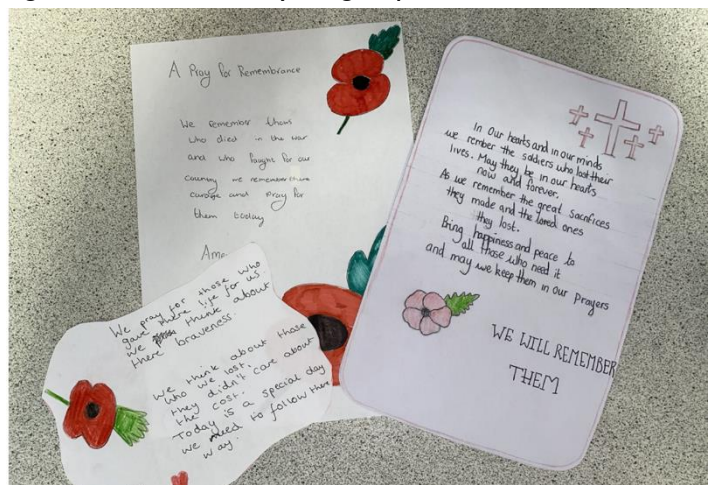 A Pray for Remembrance
We remember thous
who died in the war
and who faught for our
country we remember there
carage and pray for
them today
Ame
In our hearts and in our minds
we rember the soldiers who lost their
lives. May they be in our hearts
now and forever.
As we remember the great sacrifices
they made and the loved ones
they lost.
Bring happiness and peace to
all those who need it
and may we keep them in our prayers
WE WILL REMEMBER
THEM
We pray for those who
gave there life for us
we think about
there braveness.
We think about those
who we lost,
they didn't care about
the cost.
Today is a special day
we need to follow there
way.